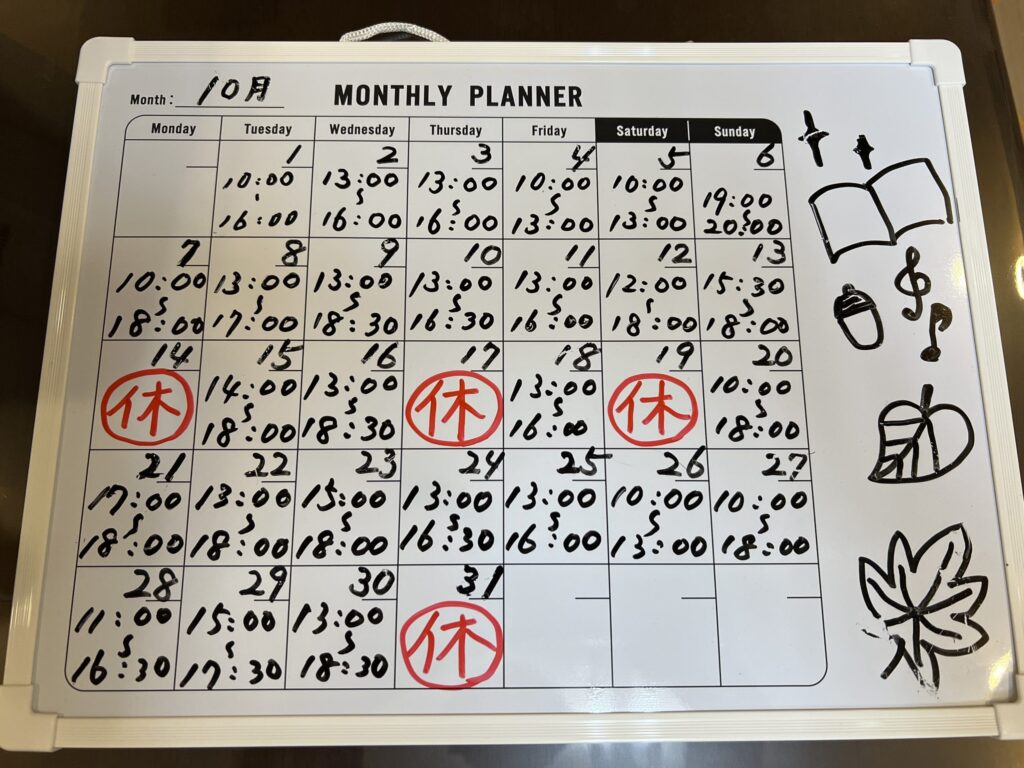 Month: 10月 MONTHLY PLANNER
Monday Tuesday Wednesday Thursday Friday Saturday Sunday
1 2 3 4 5 6
10:00 13:00 13:00 10:00 10:00 19:00
16:00 16:00 16:00 13:00 13:00 20:00
7 8 9 10 11 12 13
10:00 13:00 13:00 13:00 13:00 12:00 15:30
18:00 17:00 18:30 16:30 16:00 18:00 18:00
14 15 16 17 18 19 20
休 14:00 13:00 休 13:00 休 10:00
18:00 18:30 16:00 18:00
21 22 23 24 25 26 27
17:00 13:00 15:00 13:00 13:00 10:00 10:00
18:00 18:00 18:00 16:30 16:00 13:00 18:00
28 29 30 31
11:00 15:00 13:00 休
16:30 17:30 18:30